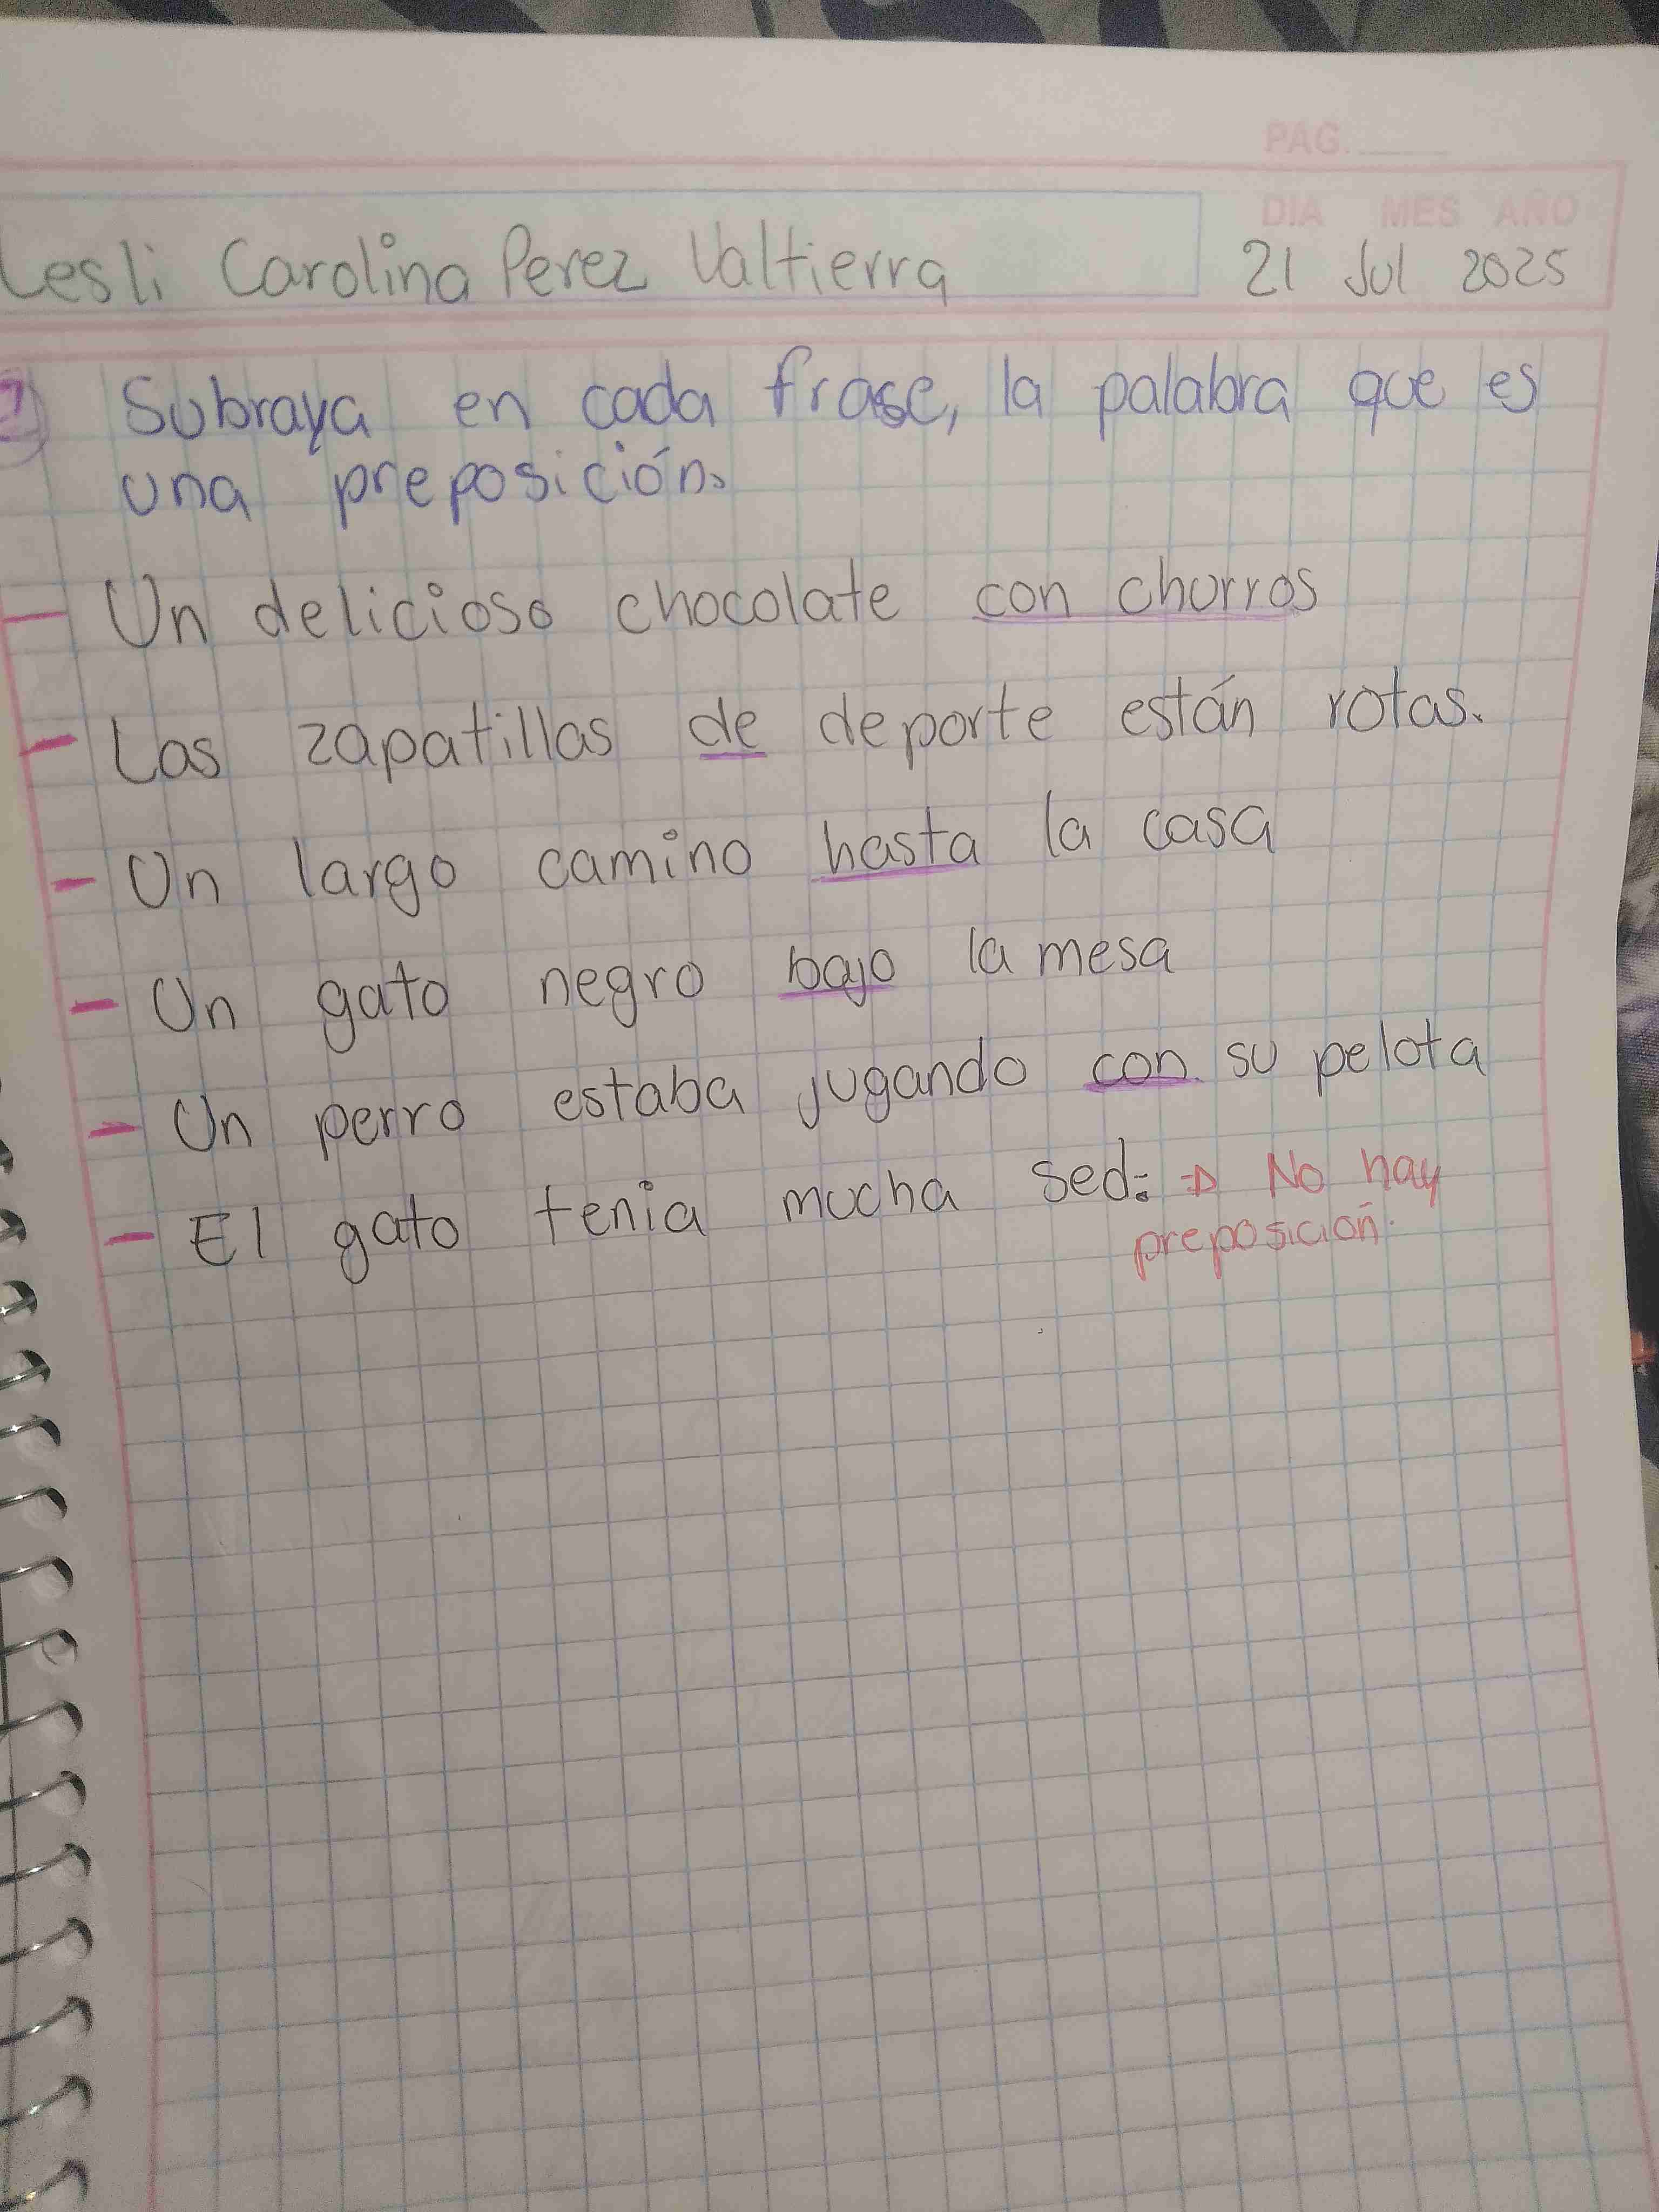 PAG.
DIA MES AÑO
Lesli Carolina Perez Valtierra 21 Jul 2025
Subraya en cada frase, la palabra que es
una preposición.
- Un delicioso chocolate con churros
- Las zapatillas de deporte están rotas.
- Un largo camino hasta la casa
- Un gato negro bajo la mesa
- Un perro estaba jugando con su pelota
- El gato tenia mucha sed: ⇒ No hay
preposición.